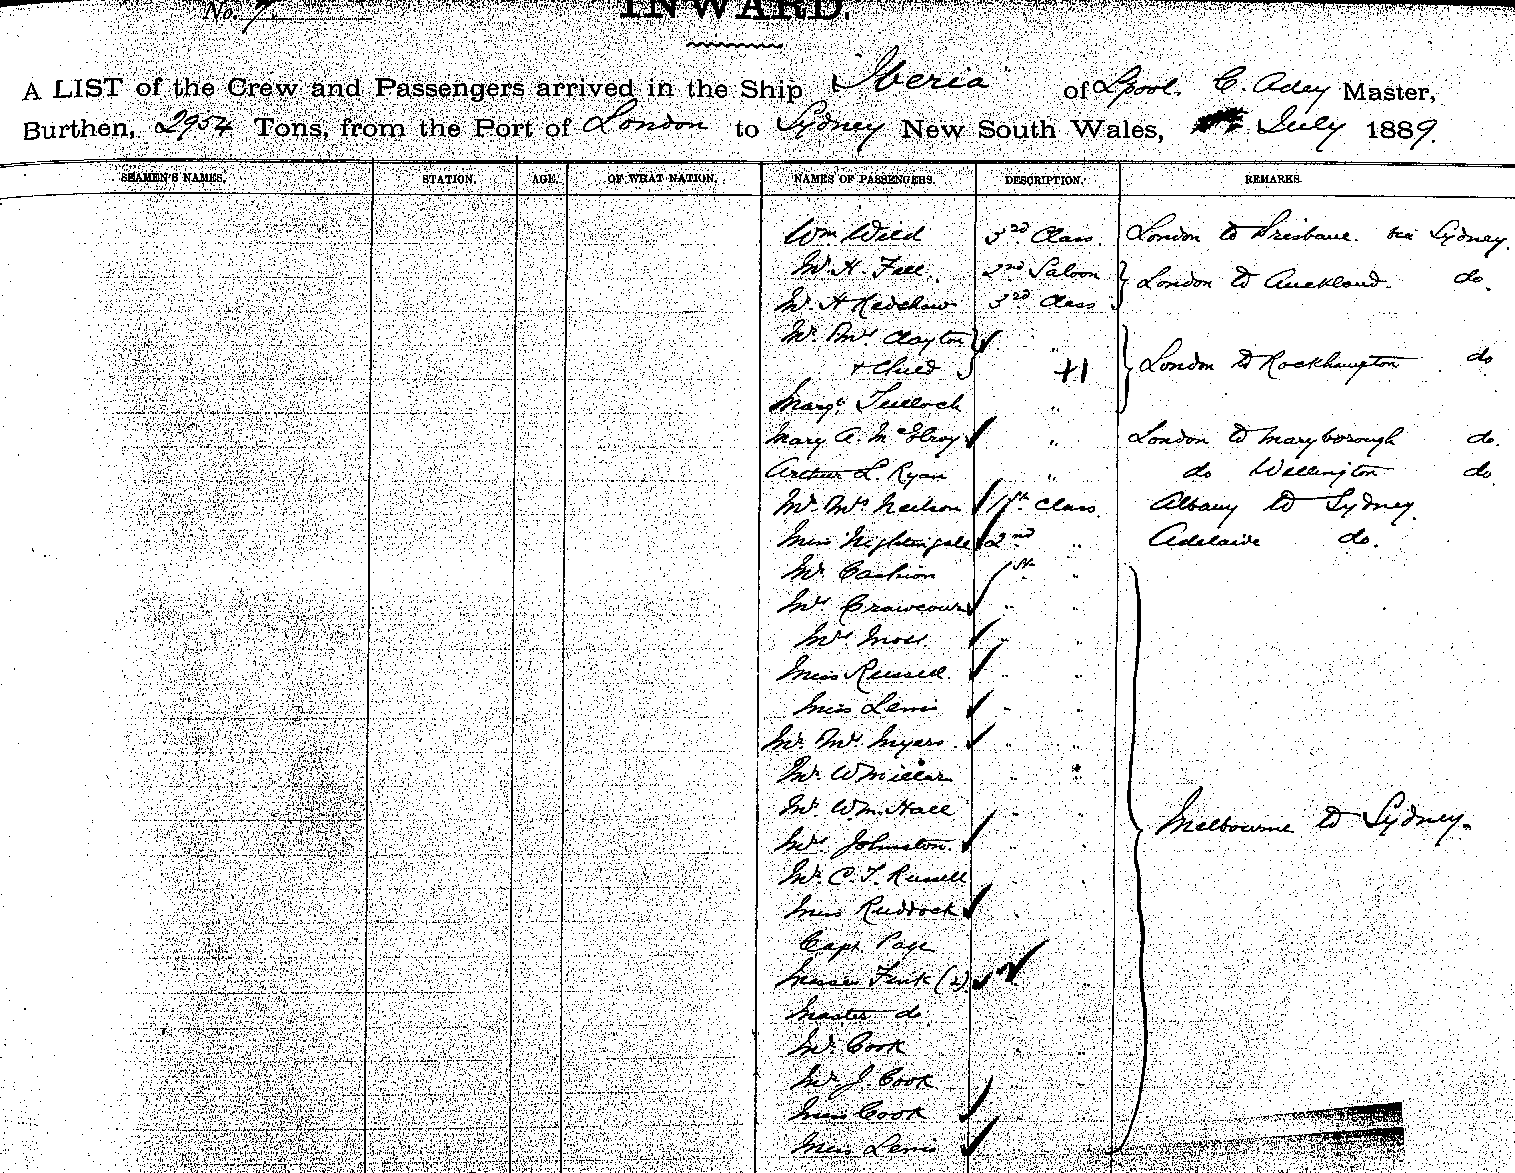 No. 7.
INWARD.
A LIST of the Crew and Passengers arrived in the Ship Iberia of Lpool. C. Adey Master,
Burthen, 2954 Tons, from the Port of London to Sydney New South Wales, July 1889.
SEAMEN'S NAMES. STATION. AGE. OF WHAT NATION. NAMES OF PASSENGERS. DESCRIPTION. REMARKS.
Wm Wild 3rd Class. London to Brisbane. via Sydney.
Mr. H. Fell. 2nd Saloon
London to Auckland. do.
Mr. A Redshaw 3rd Class
Mr. Mrs Clayton "
+ Child +1 London to Rockhampton do
Margt. Tulloch "
Mary A. McElroy " London to Maryborough do.
Arthur L. Ryan " do Wellington do
Mr. Mrs Neilson 1st Class. Albany to Sydney.
Miss Nightingale 2nd " Adelaide do.
Mr. Cashion 1st "
Mrs Crawcour " "
Mrs Moss. " "
Miss Russell " "
Miss Lewis " "
Mr. Mrs Myers. " "
Mr. W Millar " "
Mr. Wm. Hall " "
Melbourne to Sydney.
Mrs Johnston. " "
Mr. C. T. Russell " "
Miss Ruddock " "
Capt. Page " "
Misses Fink (2) " "
Master do " "
Mr. Cook " "
Mr. J. Cook " "
Miss Cook " "
Miss Lewis